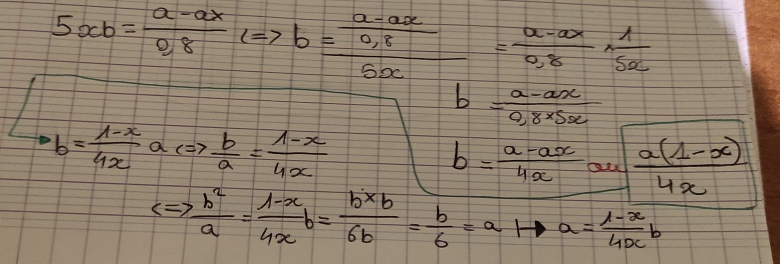 5xb = (a-ax)/0,8 <=> b = ((a-ax)/0,8)/5x = (a-ax)/0,8 × 1/5x
b = (a-ax)/(0,8×5x)
b = (a-ax)/4x ou a(1-x)/4x
b = (1-x)/4x a <=> b/a = (1-x)/4x
<=> b²/a = (1-x)/4x b = (b×b)/6b = b/6 = a ↦ a = (1-x)/4x b